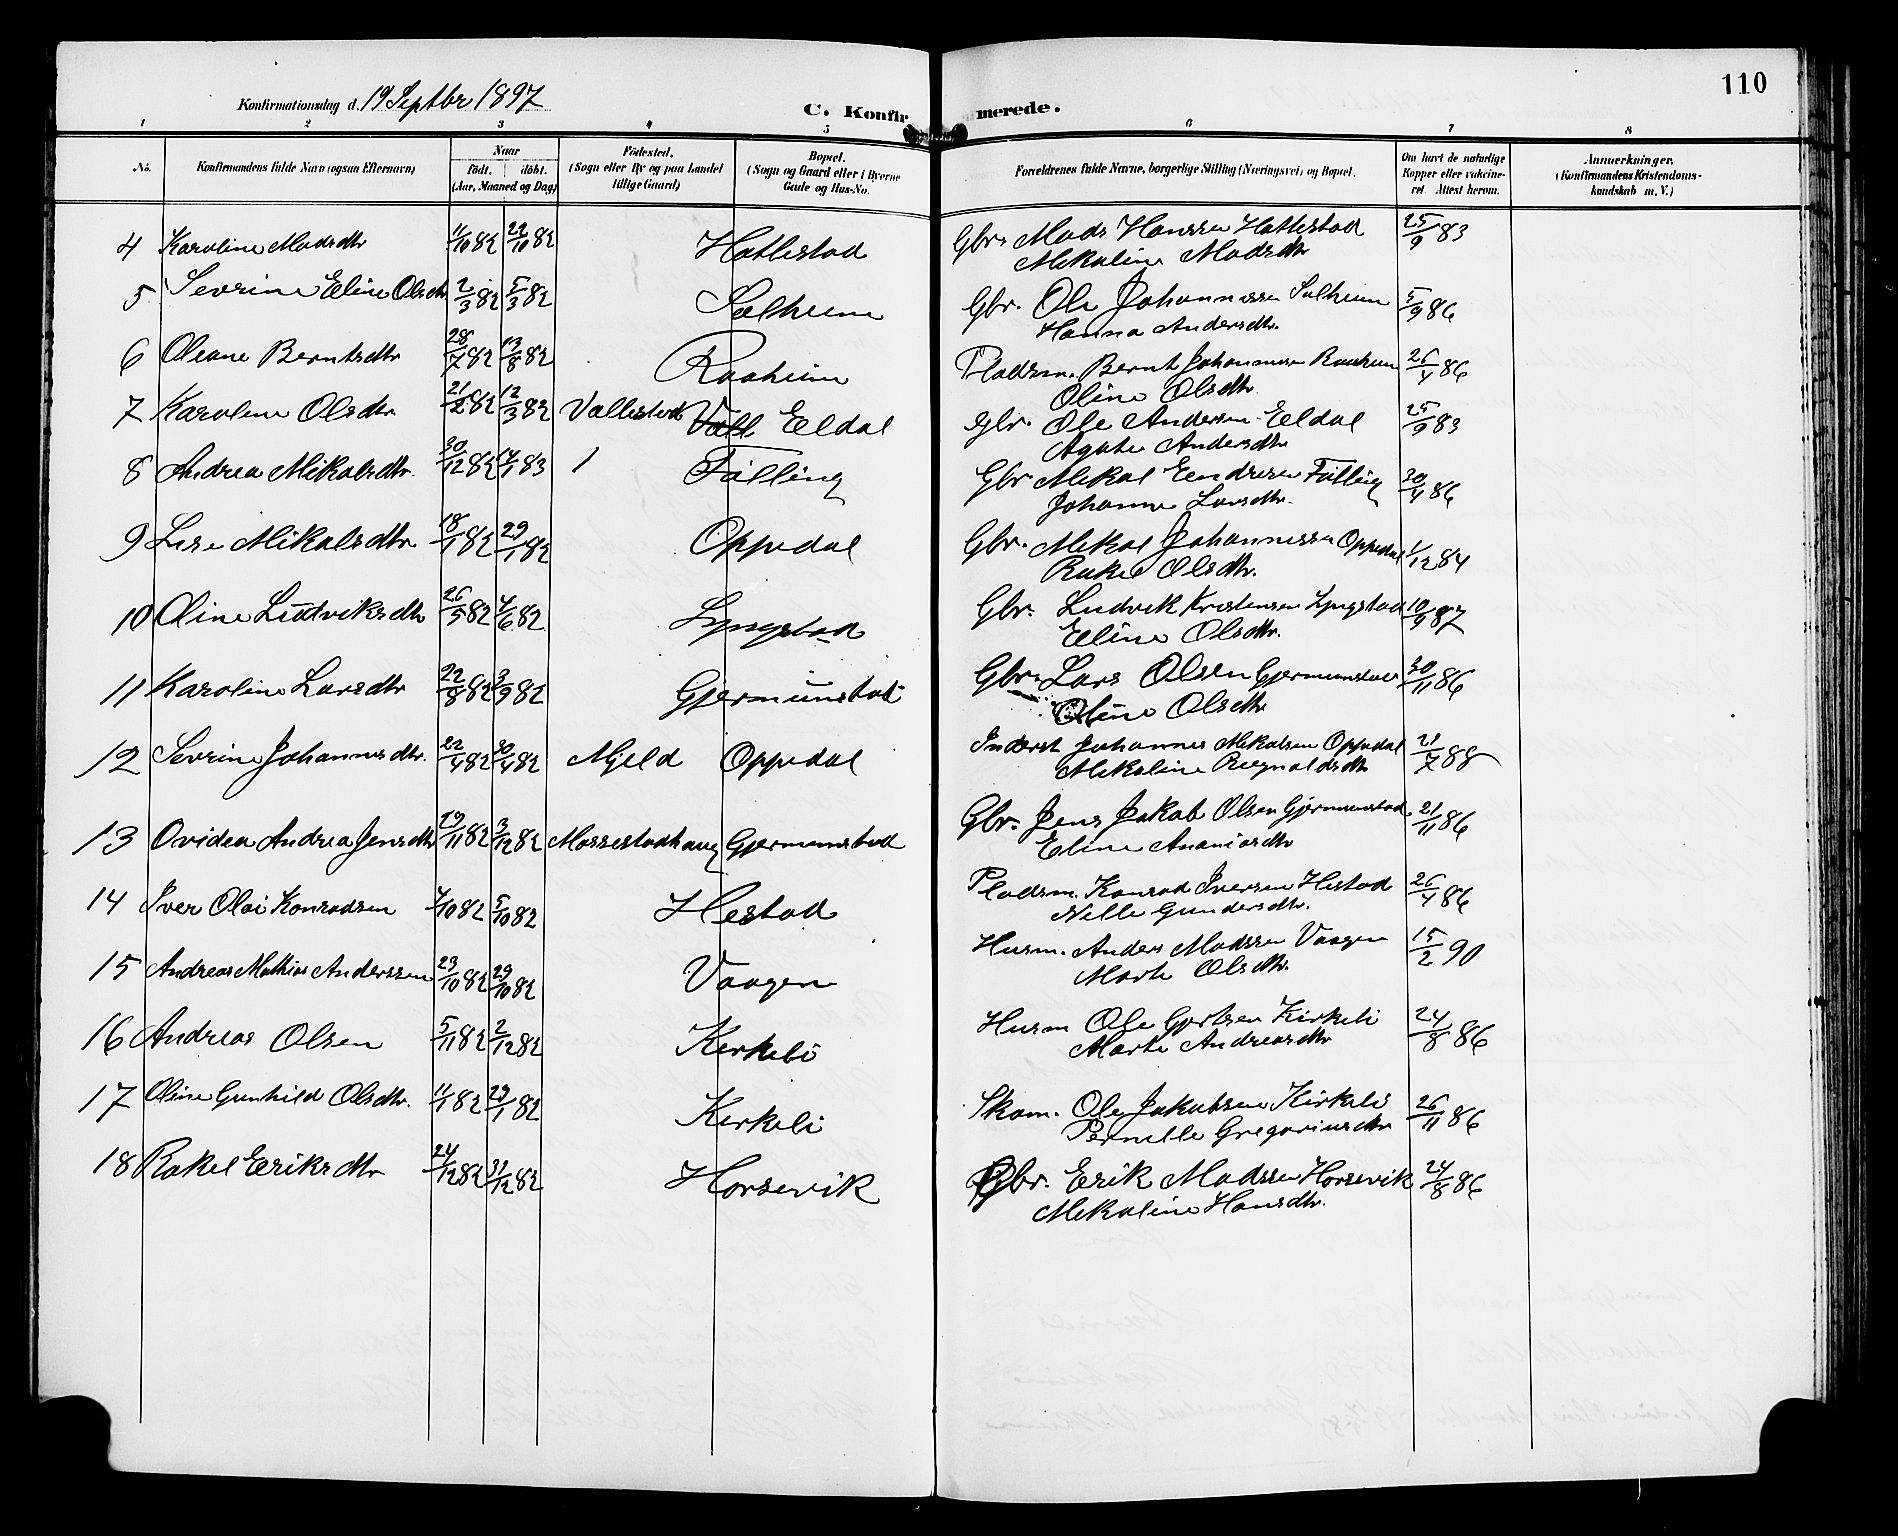 110
Konfirmationsdag d. 19 Septbr 1897
C. Konfirmerede.
1 2 3 4 5 6 7 8
No. Konfirmandens fulde Navn (ogsaa Efternavn) Naar Födt. döbt. (Aar, Maaned og Dag) Födested. (Sogn eller By og paa Landet tillige Gaard) Bopæl. (Sogn og Gaard eller i Byerne Gade og Hus-No. Forældrenes fulde Navne, borgerlige Stilling (Næringsvei) og Bopæl. Om havt de naturlige Kopper eller vaccineret Attest herom. Anmerkninger. (Konfirmandens Kristendomskundskab m. V.)
4 Karoline Madsdtr 11/10 82 22/10 82 Hatlestad Gbr. Mads Hanssen Hatlestad 25/9 83
Mikaline Madsdtr
5 Sevrine Eline Olsdtr 2/3 82 5/3 82 Solheim Gbr. Ole Johannessen Solheim 5/9 86
Hanna Andersdtr.
6 Oleane Berntsdtr 28/7 82 13/8 82 Raaheim Pladsm. Bernt Johannessen Raaheim 26/4 86
Oline Olsdtr
7 Karoline Olsdtr 21/2 82 12/3 82 Vallestad Vall Eldal Gbr. Ole Andersen Eldal 25/9 83
Agate Andersdtr
8 Andrea Mikalsdtr. 30/12 82 14/1 83 Fitling Gbr Mikal Eendresen Fitling 30/4 86
Johanne Larsdtr.
9 Lise Mikalsdtr 18/1 82 29/1 82 Oppedal Gbr. Mikal Johannessen Oppedal 1/12 84
Rakel Olsdtr.
10 Oline Ludviksdtr 26/5 82 4/6 82 Lyngstad Gbr. Ludvik Kristensen Lyngstad 10/9 87
Eline Olsdtr.
11 Karoline Larsdtr 22/8 82 3/9 82 Gjermunstad Gbr. Lars Olsen Gjermunstad 30/11 86
Oline Olsdtr
12 Sevrine Johannesdtr. 22/4 82 30/4 82 Mjeld Oppedal Inderst Johannes Mikalsen Oppedal 21/7 88
Mikaline Reynoldsdtr
13 Ovidea Andrea Jensdtr 19/11 82 3/12 82 Massestadhaug Gjermunstad Gbr. Jens Jakob Olsen Gjermunstad 21/11 86
Eline Ananiasdtr
14 Iver Olai Konradsen 4/10 82 5/10 82 Hestad Pladsm. Konrad Iversen Hestad 26/4 86
Nille Gundersdtr.
15 Andreas Mathias Anderssen 23/10 82 29/10 82 Vaagen Husm. Anders Madssen Vaagen 15/2 90
Marte Olsdtr.
16 Andreas Olsen 5/11 82 2/12 82 Kirkeli Husm Ole Gjertsen Kirkeli 24/8 86
Marte Andreasdtr
17 Oline Gunhild Olsdtr. 11/1 82 29/1 82 Kirkeli Skom. Ole Jakobsen Kirkeli 26/11 86
Pernille Gregoriusdtr
18 Rakel Eriksdtr 24/12 82 31/12 82 Horsevik Gbr. Erik Madssen Horsevik 24/8 86
Mikaline Hansdtr.